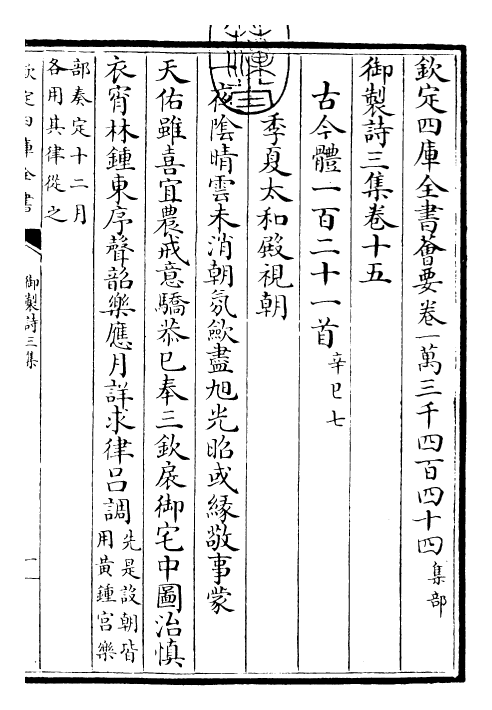 欽定四庫全書薈要卷一萬三千四百四十四集部
御製詩三集卷十五
古今體一百二十一首辛巳七
季夏太和殿視朝
一夜陰晴雲未消朝氛歛盡旭光昭或緣敬事蒙
天佑雖喜宜農戒意驕恭己奉三欽扆御宅中圖治慎
衣宵林鍾東序聲韶樂應月詳求律吕調先是設朝皆
用黄鍾宫樂
部奏定十二月
各用其律從之
欽定四庫全書
御製詩三集
一